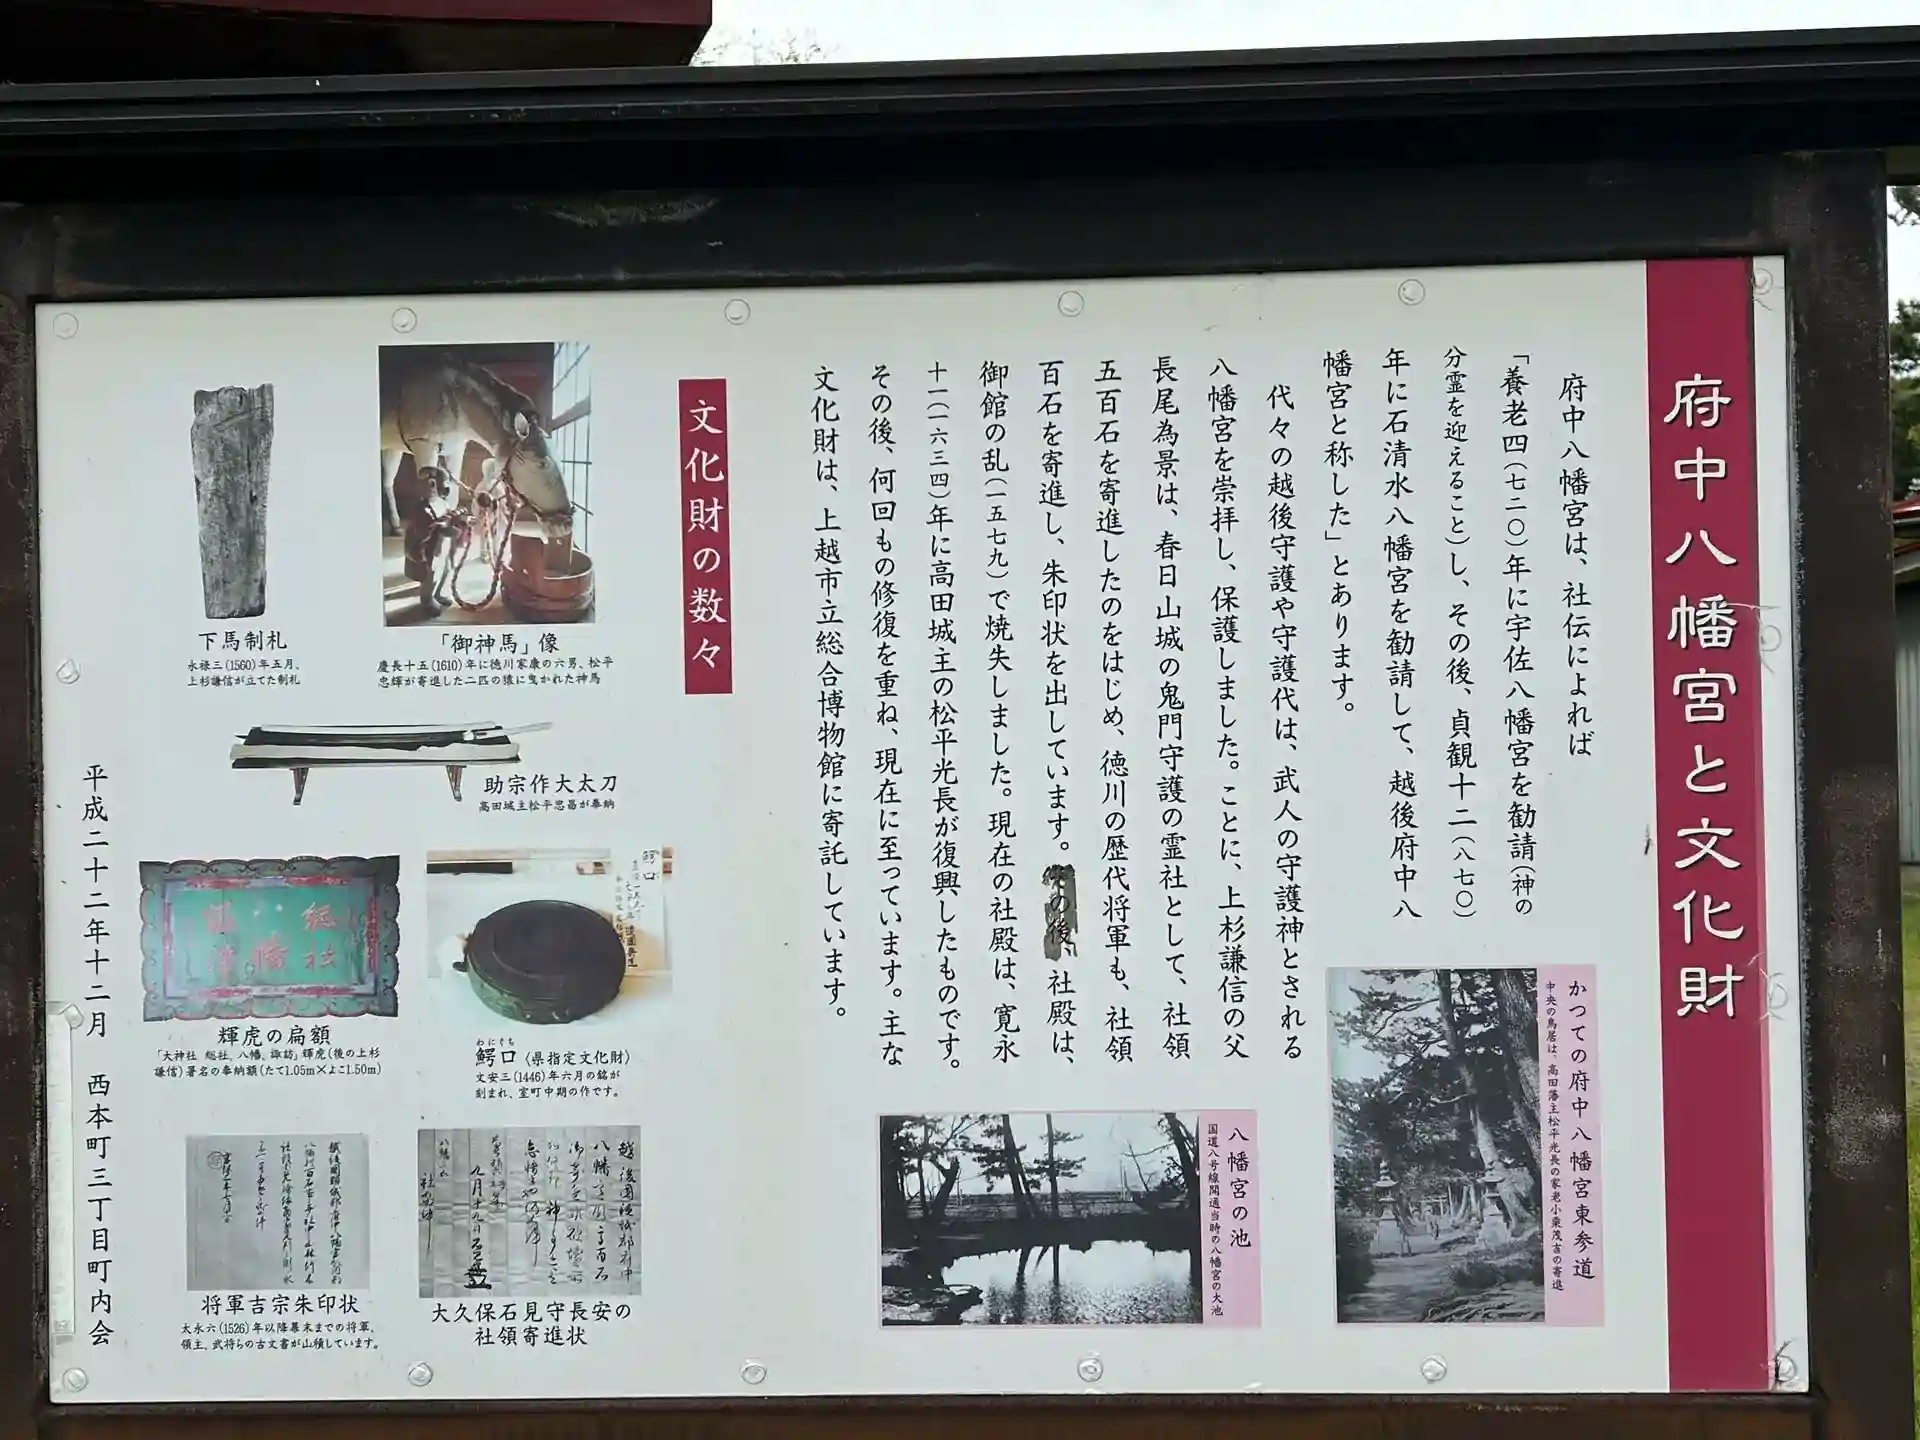 府中八幡宮と文化財
府中八幡宮は、社伝によれば
「養老四(七二〇)年に宇佐八幡宮を勧請(神の
分霊を迎えること)し、その後、貞観十二(八七〇)
年に石清水八幡宮を勧請して、越後府中八
幡宮と称した」とあります。
代々の越後守護や守護代は、武人の守護神とされる
八幡宮を崇拝し、保護しました。ことに、上杉謙信の父
長尾為景は、春日山城の鬼門守護の霊社として、社領
五百石を寄進したのをはじめ、徳川の歴代将軍も、社領
百石を寄進し、朱印状を出しています。その後、社殿は、
御館の乱(一五七九)で焼失しました。現在の社殿は、寛永
十一(一六三四)年に高田城主の松平光長が復興したものです。
その後、何回もの修復を重ね、現在に至っています。主な
文化財は、上越市立総合博物館に寄託しています。
かつての府中八幡宮東参道
中央の鳥居は、高田藩主松平光長の家老小栗茂吉の寄進
八幡宮の池
国道八号線開通当時の八幡宮の大池
文化財の数々
「御神馬」像
慶長十五(1610)年に徳川家康の六男、松平
忠輝が寄進した二匹の猿に曳かれた神馬
下馬制札
永禄三(1560)年五月、
上杉謙信が立てた制札
助宗作大太刀
高田城主松平忠昌が奉納
鰐口
わにぐち
鰐口〈県指定文化財〉
文安三(1446)年六月の銘が
刻まれ、室町中期の作です。
総社
八幡
輝虎の扁額
「大神社 総社、八幡、諏訪」輝虎(後の上杉
謙信)署名の奉納額(たて1.05m×よこ1.50m)
大久保石見守長安の
社領寄進状
将軍吉宗朱印状
大永六(1526)年以降幕末までの将軍、
領主、武将らの古文書が山積しています。
平成二十二年十二月 西本町三丁目町内会